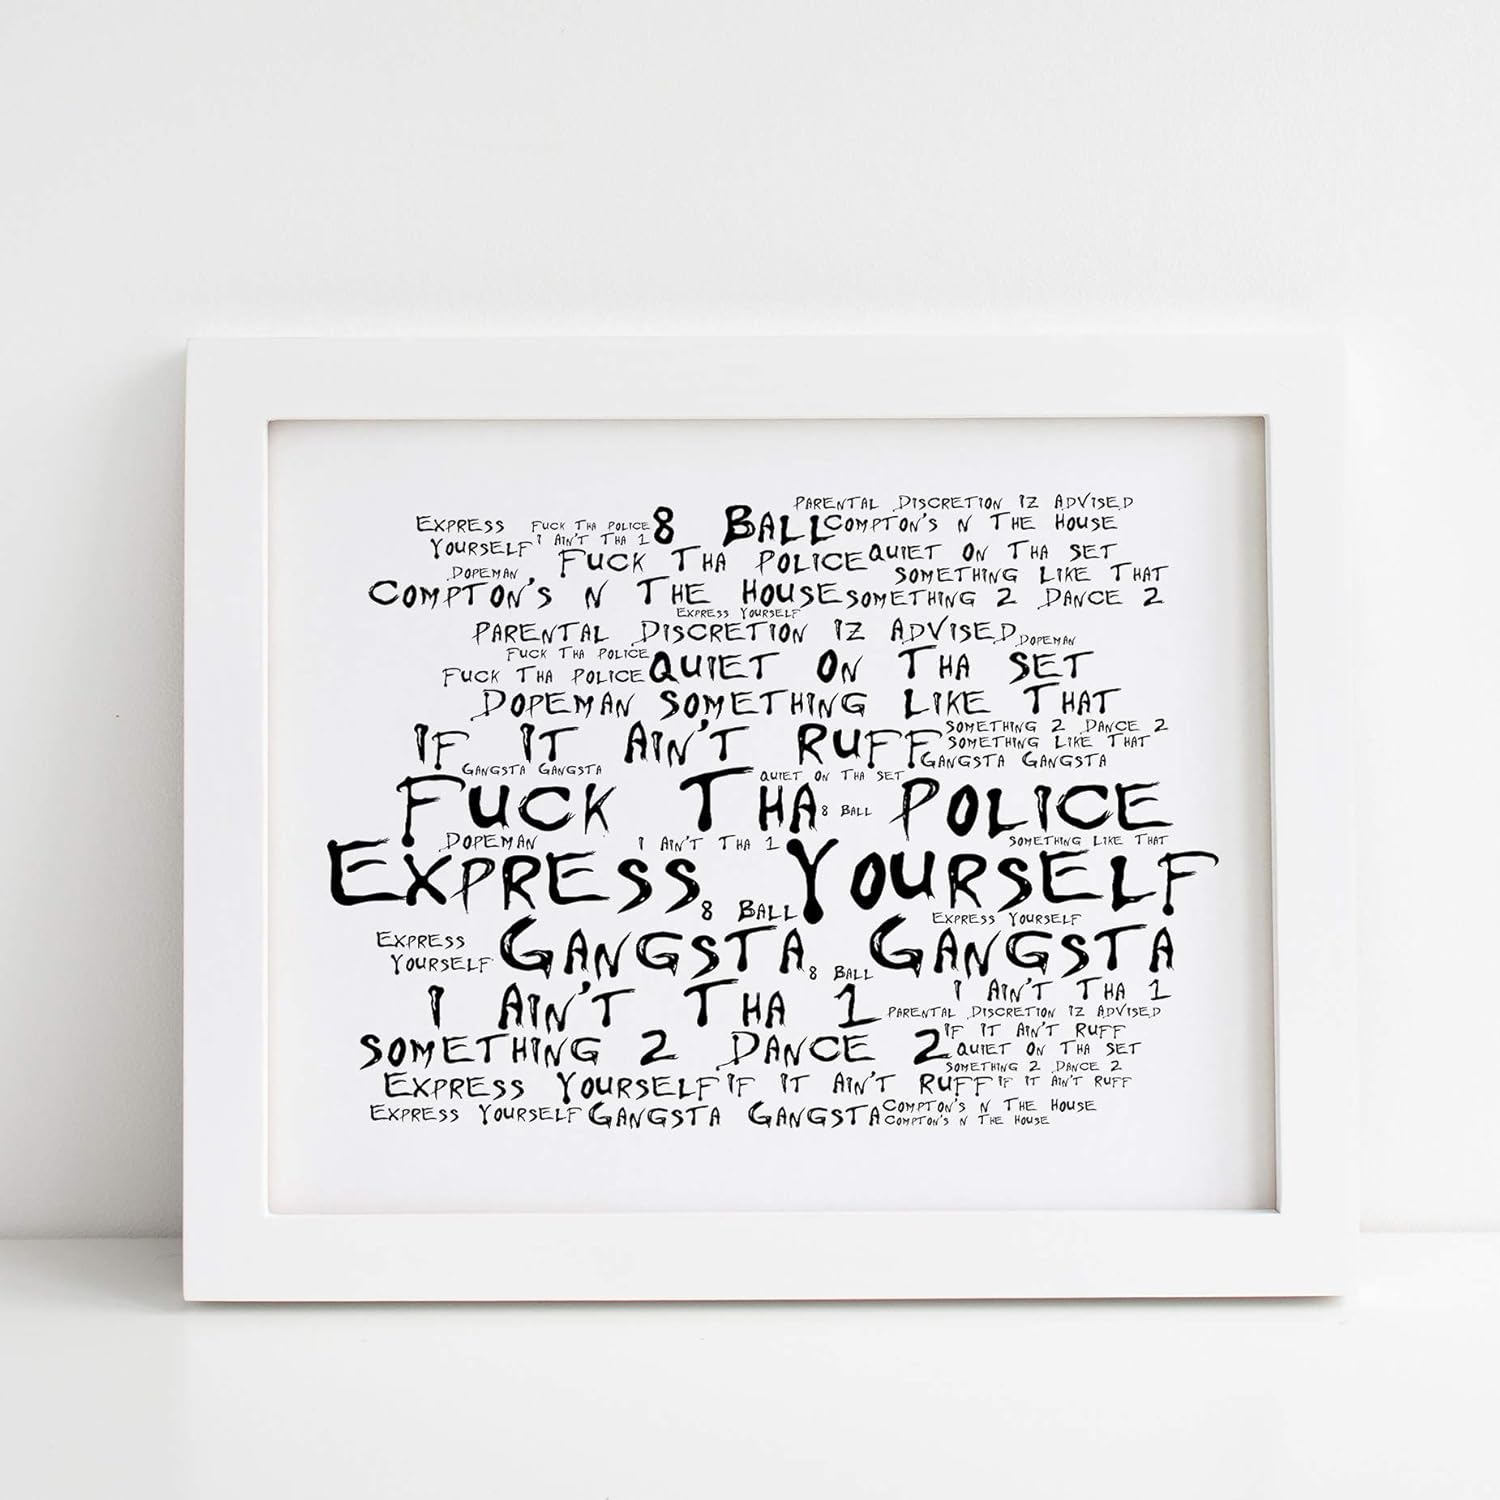 PARENTAL DISCRETION IZ ADVISED
EXPRESS YOURSELF
FUCK THA POLICE
8 BALL
COMPTON'S N THE HOUSE
I AIN'T THA 1
FUCK THA POLICE
QUIET ON THA SET
DOPEMAN
SOMETHING LIKE THAT
COMPTON'S N THE HOUSE
SOMETHING 2 DANCE 2
EXPRESS YOURSELF
PARENTAL DISCRETION IZ ADVISED
DOPEMAN
FUCK THA POLICE
FUCK THA POLICE
QUIET ON THA SET
DOPEMAN
SOMETHING LIKE THAT
IF IT AIN'T RUFF
SOMETHING 2 DANCE 2
SOMETHING LIKE THAT
GANGSTA GANGSTA
GANGSTA GANGSTA
QUIET ON THA SET
FUCK THA POLICE
8 BALL
DOPEMAN
I AIN'T THA 1
SOMETHING LIKE THAT
EXPRESS YOURSELF
8 BALL
EXPRESS YOURSELF
EXPRESS YOURSELF
GANGSTA GANGSTA
8 BALL
I AIN'T THA 1
I AIN'T THA 1
PARENTAL DISCRETION IZ ADVISED
IF IT AIN'T RUFF
SOMETHING 2 DANCE 2
QUIET ON THA SET
SOMETHING 2 DANCE 2
EXPRESS YOURSELF
IF IT AIN'T RUFF
IF IT AIN'T RUFF
EXPRESS YOURSELF
GANGSTA GANGSTA
COMPTON'S N THE HOUSE
COMPTON'S N THE HOUSE